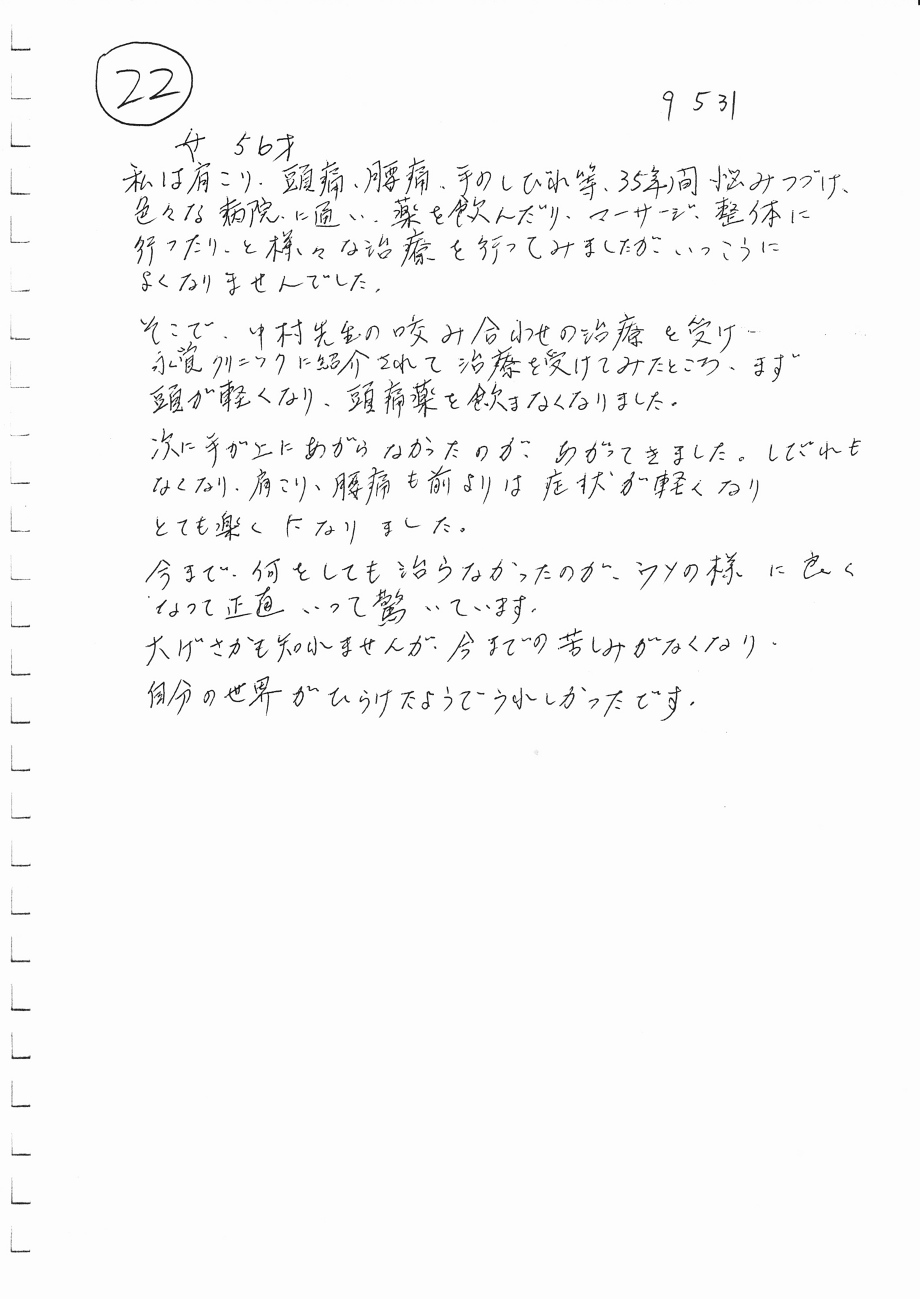 22
9 5 31
女 56才
私は肩こり、頭痛、腰痛、手のしびれ等、35年間悩みつづけ、
色々な病院に通い、薬を飲んだり、マーサージ、整体に
行ったり、と様々な治療を行ってみましたが、いっこうに
よくなりませんでした。
そこで、中村先生の咬み合わせの治療を受け
クリニックに紹介されて治療を受けてみたところ、まず
頭が軽くなり、頭痛薬を飲まなくなりました。
次に手が上にあがらなかったのが、あがってきました。しびれも
なくなり、肩こり、腰痛も前よりは症状が軽くなり
とても楽くになりました。
今まで、何をしても治らなかったのが、ウソの様に良く
なって正直いって驚いています。
大げさかも知れませんが、今までの苦しみがなくなり、
自分の世界がひらけたようでうれしかったです。